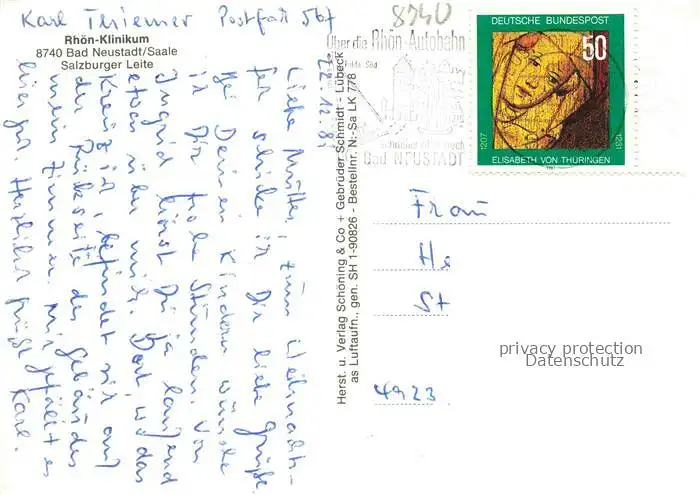 Karl Thiemer Postfach 567
Rhön-Klinikum
8740 Bad Neustadt/Saale
Salzburger Leite
22.12.81
Liebe Mutter, zum Weihnachts-
fest schicke ich Dir liebe Grüße.
Bei Deinen Kindern wünsche
ich Dir frohe Stunden. Von
Ingrid hörst Du ja laufend
etwas über mich. Dort, wo das
Kreuz ist, befindet sich auf
der Rückseite des Gebäudes
mein Zimmer. Mir gefällt es
hier gut. Herzlichst grüßt Karl.
Herst. u. Verlag Schöning & Co + Gebrüder Schmidt - Lübeck
as Luftaufn., gen. SH 1-90826 - Bestellnr. N:-Sa LK 778
8740
Über die Rhön-Autobahn
Bad NEUSTADT
DEUTSCHE BUNDESPOST
50
1207
1231
ELISABETH VON THÜRINGEN
1981
Frau
He
St
4923
privacy protection
Datenschutz